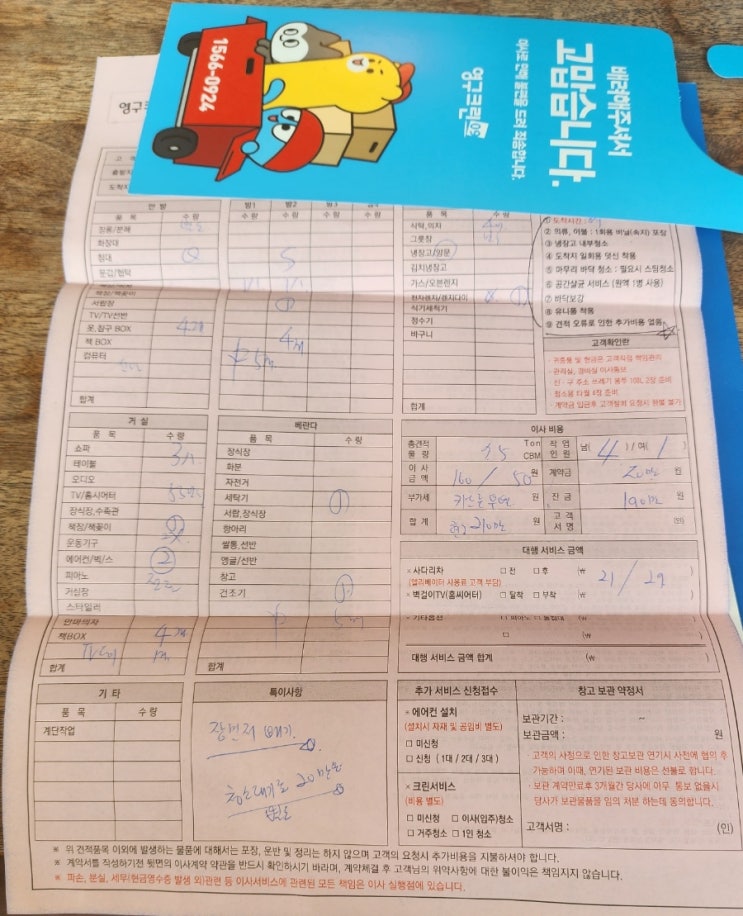 1566-0924
배려해주셔서
고맙습니다.
이사로 인해 불편을 드려 죄송합니다.
영구크린
영구크
고객
출발지
도착지
안방 방1 방2 방3
품목 수량 수량 수량 수량
장롱/분해
화장대
침대
문갑/협탁
책장/책꽂이
서랍장
TV/TV선반
옷,잠구 BOX 4개 4개
책 BOX
컴퓨터
합계
품목 수량
식탁,의자
그릇장
냉장고/양문
김치냉장고
가스/오븐렌지
전자렌지/렌지다이
식기세척기
정수기
바구니
합계
① 도착시간 :
② 의류, 이불 : 1회용 비닐(속지) 포장
③ 냉장고 내부청소
④ 도착지 일회용 덧신 착용
⑤ 마무리 바닥 청소 : 필요시 스팀청소
⑥ 공간살균 서비스 (원액 1병 사용)
⑦ 바닥보강
⑧ 유니폼 착용
⑨ 견적 오류로 인한 추가비용 없음
고객확인란
· 귀중품 및 현금은 고객직접 책임관리
· 관리실, 경비실 이사통보
· 신 · 구 주소 쓰레기 봉투 100L 2장 준비
· 청소용 타월 4장 준비
· 계약금 입금후 고객철회 요청시 환불 불가
거실
품목 수량
쇼파
테이블
오디오
TV/홈시어터
장식장,수족관
책장/책꽂이
운동기구
에어컨/벽/스 ②
피아노
거실장
스타일러
안마의자
책BOX 4개
합계
베란다
품목 수량
장식장
화분
자전거
세탁기 ①
서랍,장식장
항아리
쌀통,선반
앵글/선반
창고
건조기 ①
합계
이사 비용
총견적물량 Ton CBM 작업인원 남( 4 ) / 여( 1 )
이사금액 160 / 50 원 계약금 20만 원
부가세 원 잔금 190만 원
합계 210만 원 고객서명 (인)
대행 서비스 금액
× 사다리차 □ 전 □ 후 (₩ 21 / 29 )
(엘리베이터 사용료 고객 부담)
× 벽걸이TV(홈씨어터) □ 탈착 □ 부착 (₩ )
× 기타옵션 □ 피아노 □ 돌침대 (₩ )
□ (₩ )
대행 서비스 금액 합계 (₩ )
기타
품목 수량
계단작업
특이사항
20만원
추가 서비스 신청접수
× 에어컨 설치
(설치시 자재 및 공임비 별도)
□ 미신청
□ 신청 (1대 / 2대 / 3대)
× 크린서비스
(비용 별도)
□ 미신청 □ 이사(입주)청소
□ 거주청소 □ 1인 청소
창고 보관 약정서
보관기간 : ~
보관금액 : 원
· 고객의 사정으로 인한 창고보관 연기시 사전에 협의 후 가능하며 이때, 연기된 보관 비용은 선불로 합니다.
· 보관 계약만료후 3개월간 당사에 아무 통보 없을시 당사가 보관물품을 임의 처분 하는데 동의합니다.
고객서명 : (인)
※ 위 견적품목 이외에 발생하는 물품에 대해서는 포장, 운반 및 정리는 하지 않으며 고객의 요청시 추가비용을 지불하셔야 합니다.
※ 계약서를 작성하기전 뒷면의 이사계약 약관을 반드시 확인하시기 바라며, 계약체결 후 고객님의 위약사항에 대한 불이익은 책임지지 않습니다.
※ 파손, 분실, 세무(현금영수증 발생 외)관련 등 이사서비스에 관련된 모든 책임은 이사 실행점에 있습니다.